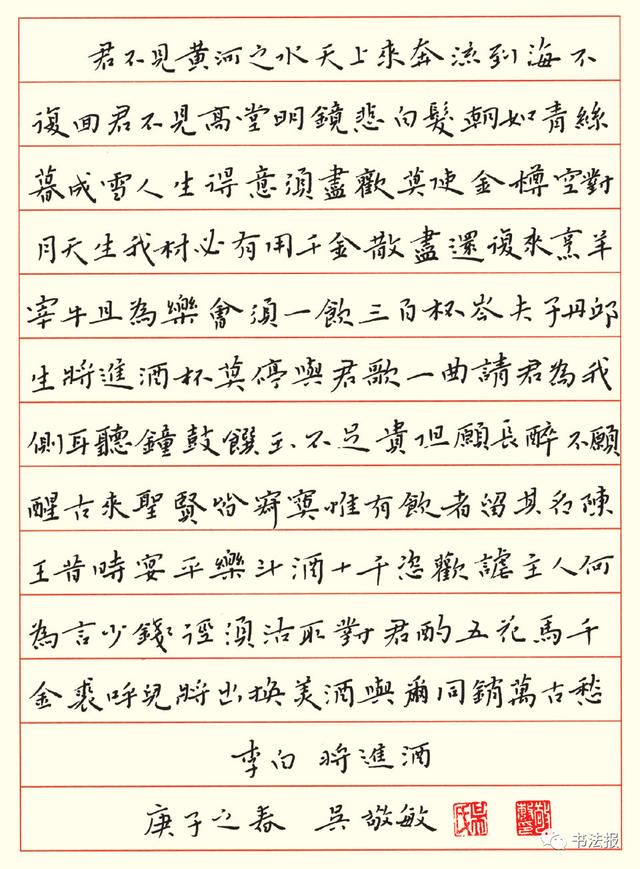 君不見黃河之水天上來奔流到海不
復回君不見高堂明鏡悲白髮朝如青絲
暮成雪人生得意須盡歡莫使金樽空對
月天生我材必有用千金散盡還復來烹羊
宰牛且為樂會須一飲三百杯岑夫子丹邱
生將進酒杯莫停與君歌一曲請君為我
側耳聽鐘鼓饌玉不足貴但願長醉不願
醒古來聖賢皆寂寞惟有飲者留其名陳
王昔時宴平樂斗酒十千恣歡謔主人何
為言少錢徑須沽取對君酌五花馬千
金裘呼兒將出換美酒與爾同銷萬古愁
李白 將進酒
庚子之春 吳敬敏
书法报